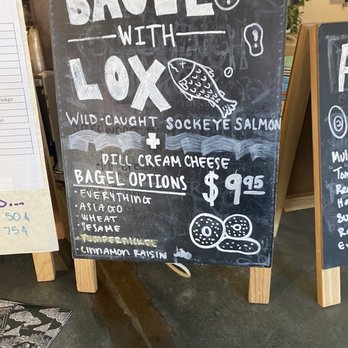 BAGEL
WITH
LOX
WILD-CAUGHT SOCKEYE SALMON
+
DILL CREAM CHEESE
BAGEL OPTIONS
$9.95
· EVERYTHING
· ASIAGO
· WHEAT
· SESAME
· PUMPERNICKEL
· CINNAMON RAISIN
50¢
75¢